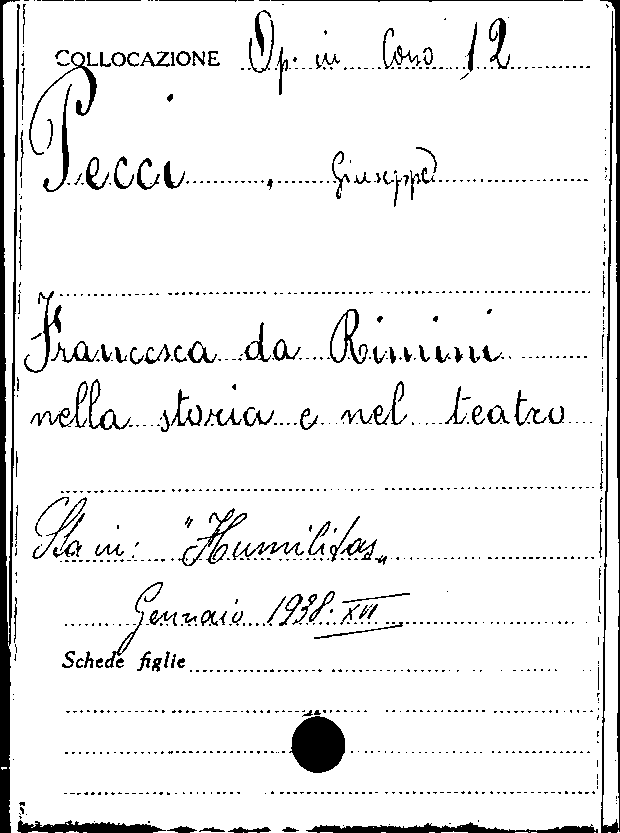 COLLOCAZIONE Op. in Corso 12
Pecci, Giuseppe
Francesca da Rimini
nella storia e nel teatro
Sta in: "Humilitas„
Gennaio 1938. XVI
Schede figlie